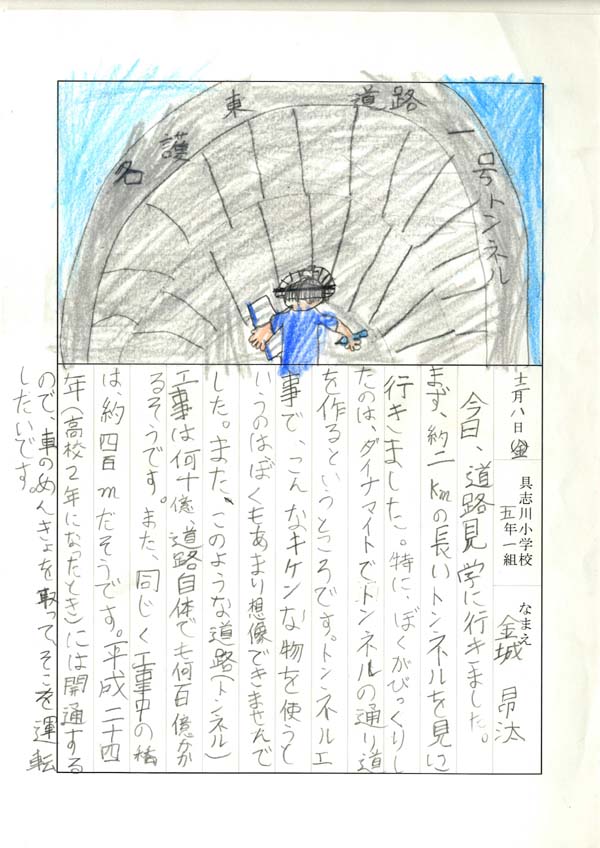 名護東道路一号トンネル
十二月八日(金)
具志川小学校
五年一組
なまえ
金城 昂汰
今日、道路見学に行きました。
まず、約二kmの長いトンネルを見に
行きました。特に、ぼくがびっくりし
たのは、ダイナマイトでトンネルの通り道
を作るというところです。トンネル工
事で、こんなキケンな物を使うと
いうのは、ぼくもあまり想像できませんで
した。また、このような道路(トンネル)
工事は何十億、道路自体でも何百億かか
るそうです。また、同じく工事中の橋
は、約四百mだそうです。平成二十四
年(高校2年になったとき)には開通する
ので、車のめんきょを取って、そこを運転
したいです。